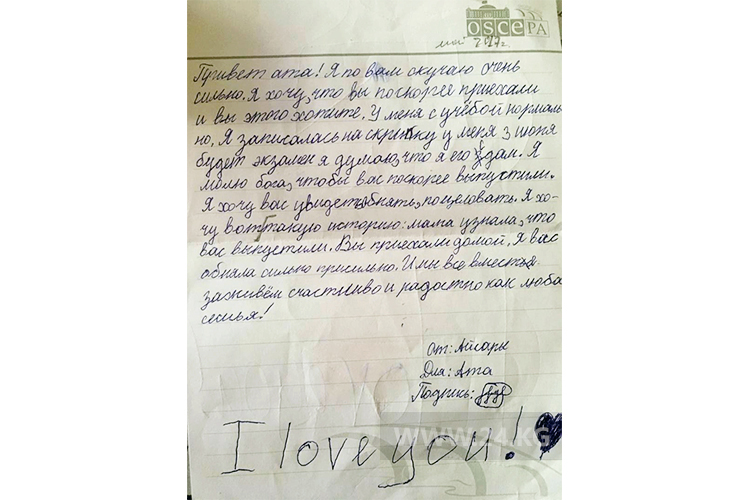 osce PA
май 2017г.
Привет ата! Я по вам скучаю очень
сильно. Я хочу, что вы поскорее приехали
и вы этого хотите. У меня с учёбой нормаль
но, Я записалась на скрипку у меня 3 июня
будет экзамен я думаю, что я его сдам. Я
молю бога, чтобы вас поскорее выпустили.
Я хочу вас увидеть, обнять, поцеловать. Я хо-
чу вот такую историю: мама узнала, что
вас выпустили. Вы приехали домой, Я вас
обняла сильно присильно. И мы все вместе
заживём счастливо и радостно как люба
семья!
От: Айсары
Для: Ата
Подпись:
www.24.kg
I love you!